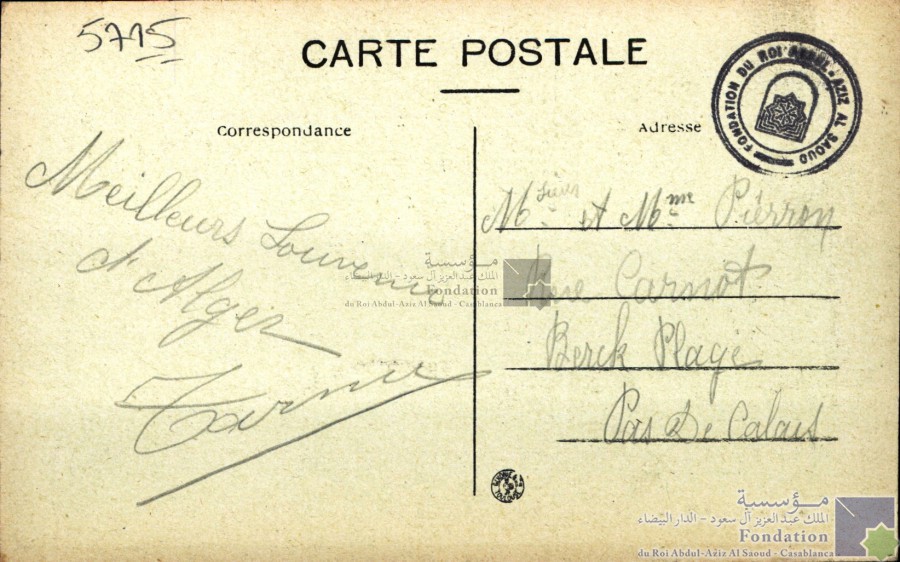 5715
CARTE POSTALE
FONDATION DU ROI ABDUL-AZIZ AL SAOUD
Correspondance
Adresse
Meilleurs Souvenirs
d'Alger
Mr et Mme Pierron
Rue Carnot
Berck Plage
Pas De Calais
مؤسسة
الملك عبد العزيز آل سعود - الدار البيضاء
Fondation
du Roi Abdul-Aziz Al Saoud - Casablanca
مؤسسة
الملك عبد العزيز آل سعود - الدار البيضاء
Fondation
du Roi Abdul-Aziz Al Saoud - Casablanca